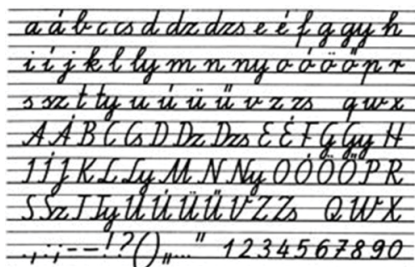 a á b c cs d dz dzs e é f g gy h
i í j k l ly m n ny o ó ö ő p r
s sz t ty u ú ü ű v z zs q w x
A Á B C Cs D Dz Dzs E É F G Gy H
I Í J K L Ly M N Ny O Ó Ö Ő P R
S Sz T Ty U Ú Ü Ű V Z Zs Q W X
. , : ; - – ! ? ( ) „ ... " 1 2 3 4 5 6 7 8 9 0